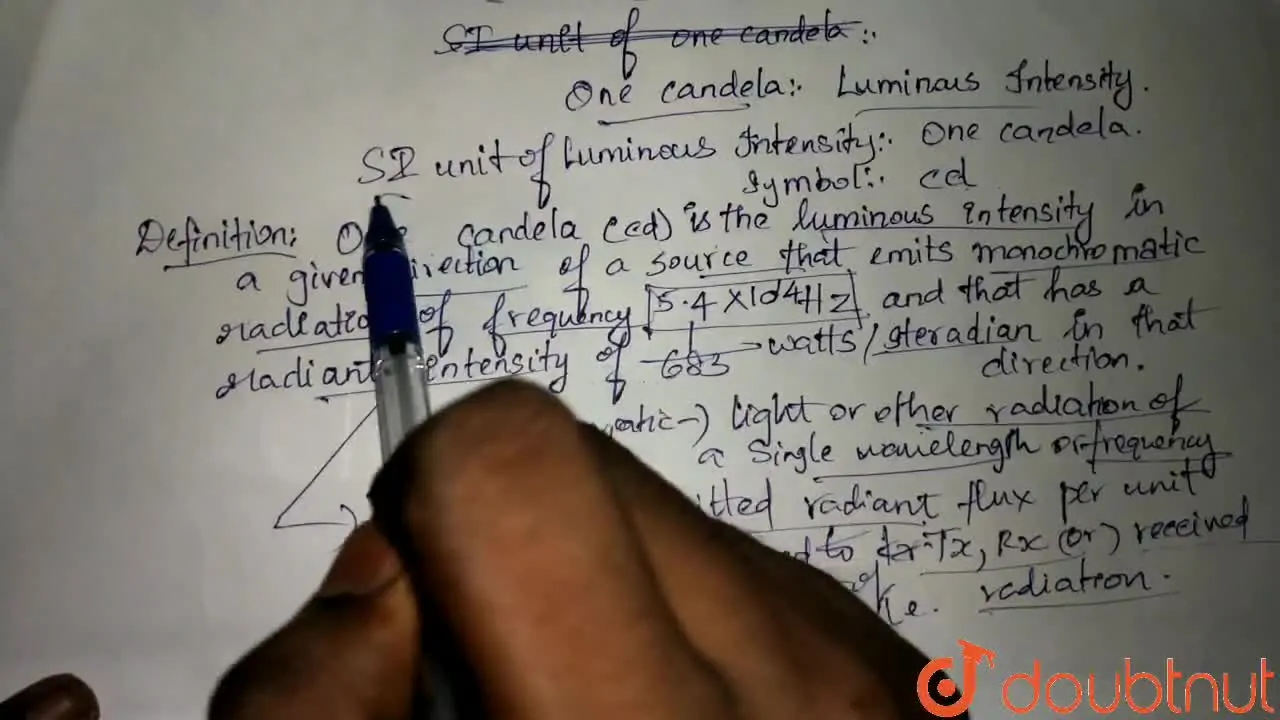 SI unit of one candela:.
One candela:. Luminous Intensity.
SI unit of Luminous Intensity:. One candela.
Symbol:. cd
Definition: candela (cd) is the luminous intensity in
a given direction of a source that emits monochromatic
radiation of frequency 5.4 X1014Hz and that has a
radiant intensity of 1/683 watts / steradian in that
direction.
light or other radiation of
a single wavelength or frequency
radiant flux per unit
to Tx, Rx (or) received
radiation.
doubtnut